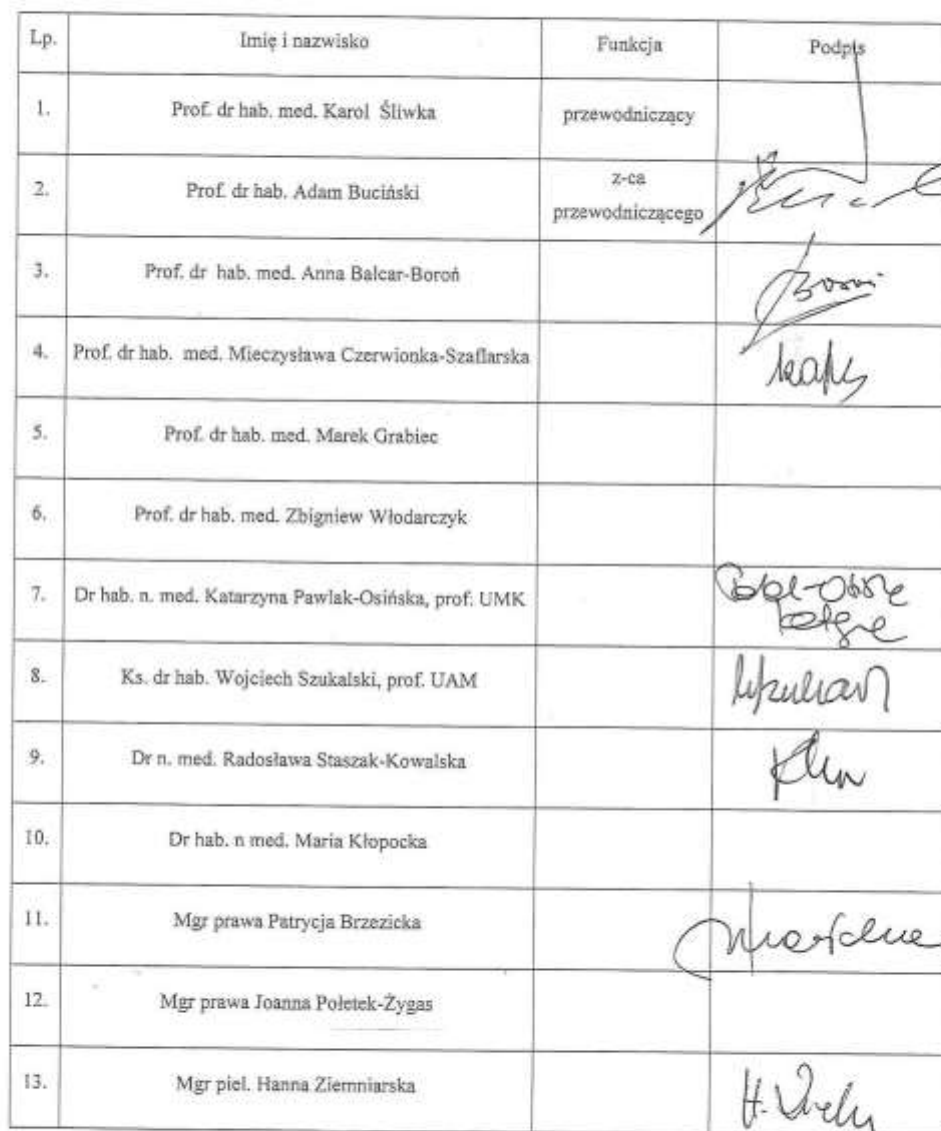 Lp. Imię i nazwisko Funkcja Podpis
1. Prof. dr hab. med. Karol Śliwka przewodniczący
2. Prof. dr hab. Adam Buciński z-ca
przewodniczącego
3. Prof. dr hab. med. Anna Balcar-Boroń
4. Prof. dr hab. med. Mieczysława Czerwionka-Szaflarska
5. Prof. dr hab. med. Marek Grabiec
6. Prof. dr hab. med. Zbigniew Włodarczyk
7. Dr hab. n. med. Katarzyna Pawlak-Osińska, prof. UMK
8. Ks. dr hab. Wojciech Szukalski, prof. UAM
9. Dr n. med. Radosława Staszak-Kowalska
10. Dr hab. n med. Maria Kłopocka
11. Mgr prawa Patrycja Brzezicka
12. Mgr prawa Joanna Połetek-Żygas
13. Mgr piel. Hanna Ziemniarska